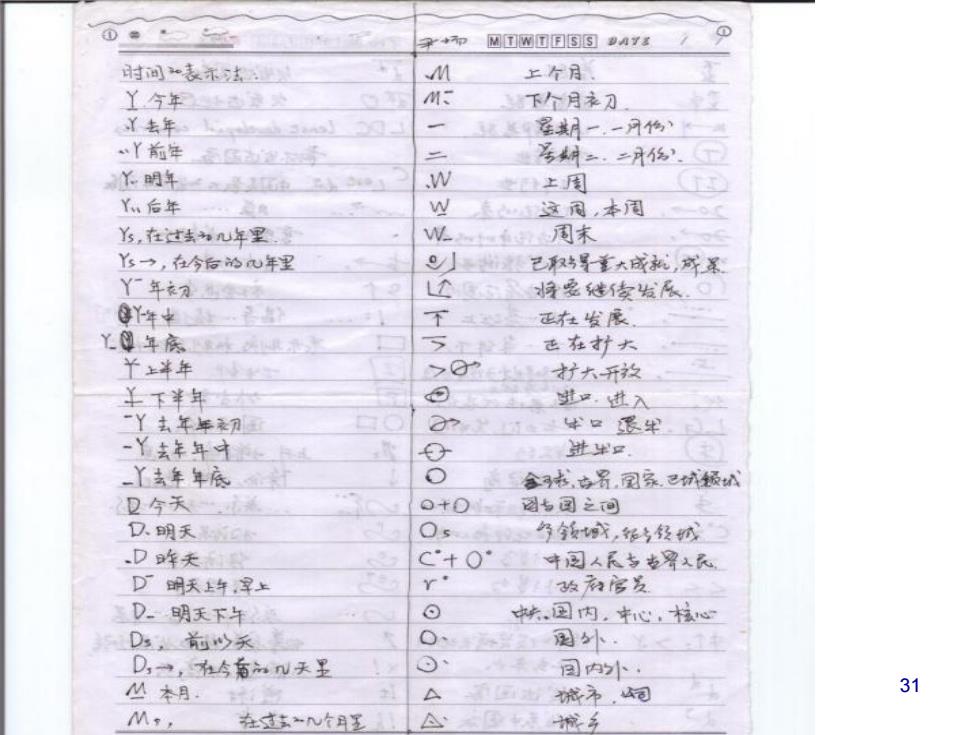 ① 
时间的表示法:
Y 今年
.Y 去年
..Y 前年
Y. 明年
Y.. 后年
Ys, 在过去的几年里
Ys→, 在今后的几年里
Y¯ 年初
Y-年中
Y_ 年底
上半年
下半年
¯Y 去年年初
-Y 去年年中
_Y 去年年底
D 今天
D. 明天
.D 昨天
D¯ 明天上午,早上
D_ 明天下午
Ds, 前几天
Ds→, 在今后的几天里
M 本月.
Ms, 在过去的几个月里
MTWTFSS DATE ①
.M 上个月
M.¯ 下个月初
一 星期一.一月份
二 星期二.二月份.
.W 上周
W 这周,本周
W_ 周末
已取得重大成就,成果
将要继续发展.
正在发展.
正在扩大
扩大开放
进口.进入
出口
进出口.
○ 全球,世界,国家,
○+○ 国与国之间
○s 各领域,很多领域
C°+○° 中国人民与世界人民.
r° 政府官员
⊙ 中央.国内,中心,核心
○. 国外.
⊙. 国内外.
△ 城市.
△. 城乡
31